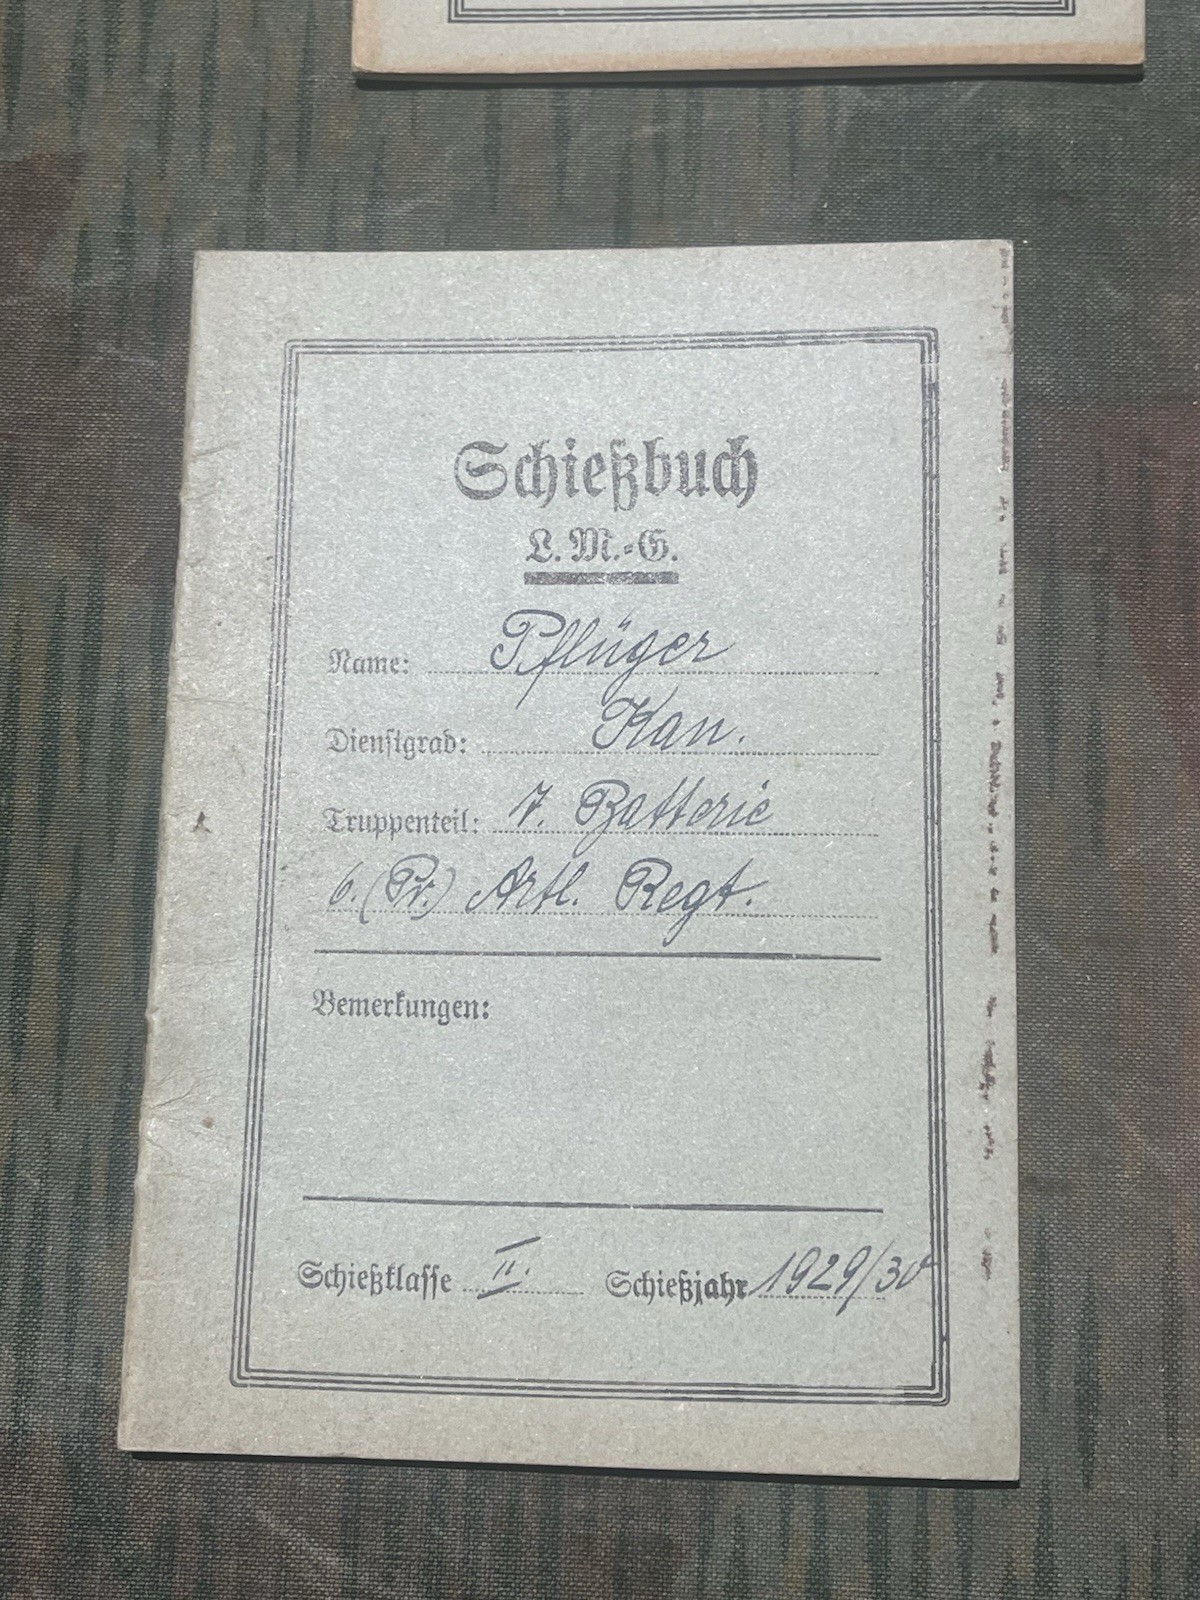 Schießbuch
L. M.-G.
Name: Pflüger
Dienstgrad: Kan.
Truppenteil: 7. Batterie
6. (Pr.) Artl. Regt.
Bemerkungen:
Schießklasse II. Schießjahr 1929/30